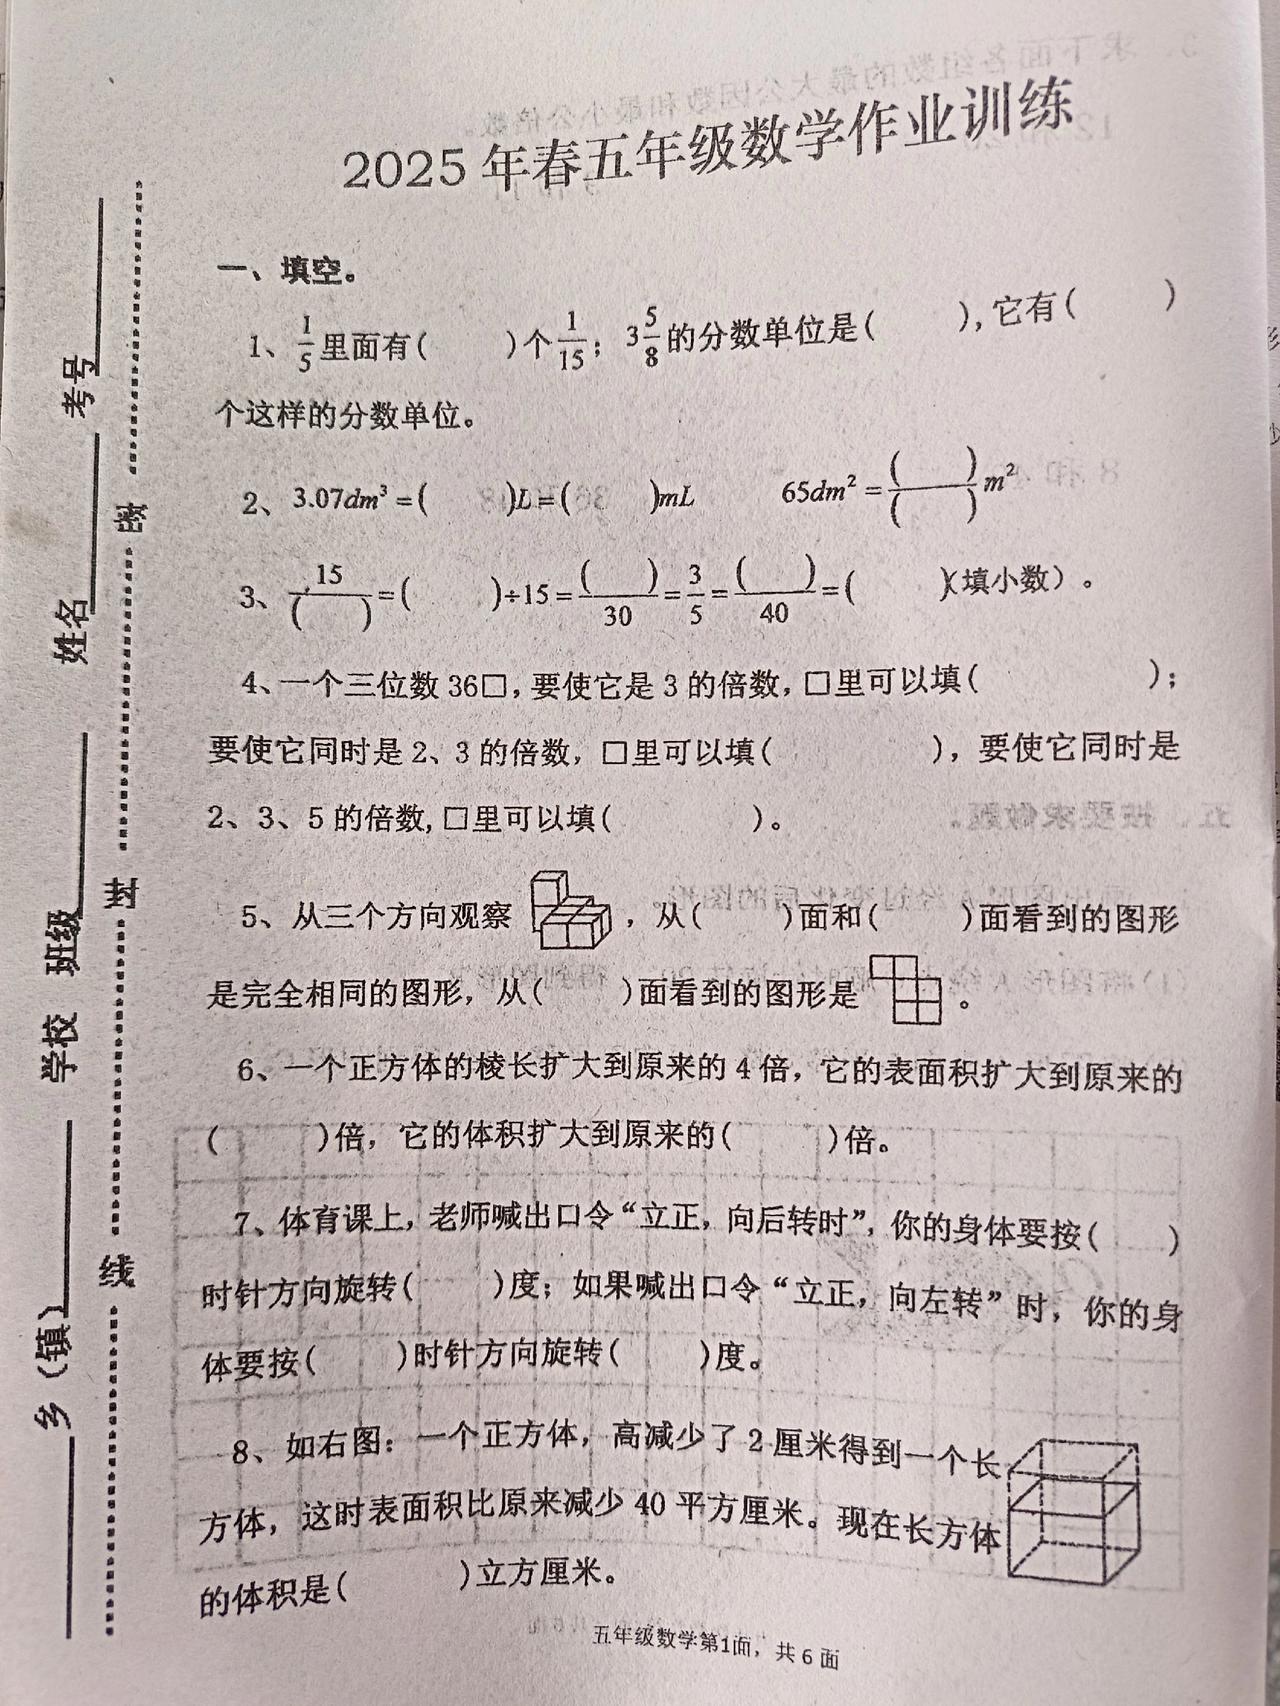 2025年春五年级数学作业训练
一、填空。
1、1/5里面有(    )个1/15；3 5/8的分数单位是(    ),它有(    )
个这样的分数单位。
2、3.07dm³=(    )L=(    )mL    65dm²=(    )/(    )m²
3、15/(    )=(    )÷15=(    )/30=3/5=(    )/40=(    )(填小数）。
4、一个三位数36□,要使它是3的倍数,□里可以填(    )；
要使它同时是2、3的倍数,□里可以填(    )，要使它同时是
2、3、5的倍数,□里可以填(    )。
5、从三个方向观察，从(    )面和(    )面看到的图形
是完全相同的图形，从(    )面看到的图形是。
6、一个正方体的棱长扩大到原来的4倍，它的表面积扩大到原来的
(    )倍，它的体积扩大到原来的(    )倍。
7、体育课上，老师喊出口令“立正，向后转时”，你的身体要按(    )
时针方向旋转(    )度；如果喊出口令“立正，向左转”时，你的身
体要按(    )时针方向旋转(    )度。
8、如右图：一个正方体，高减少了2厘米得到一个长
方体，这时表面积比原来减少40平方厘米。现在长方体
的体积是(    )立方厘米。
五年级数学第1面，共6面
乡（镇） 学校 班级 姓名 考号
线 封 密